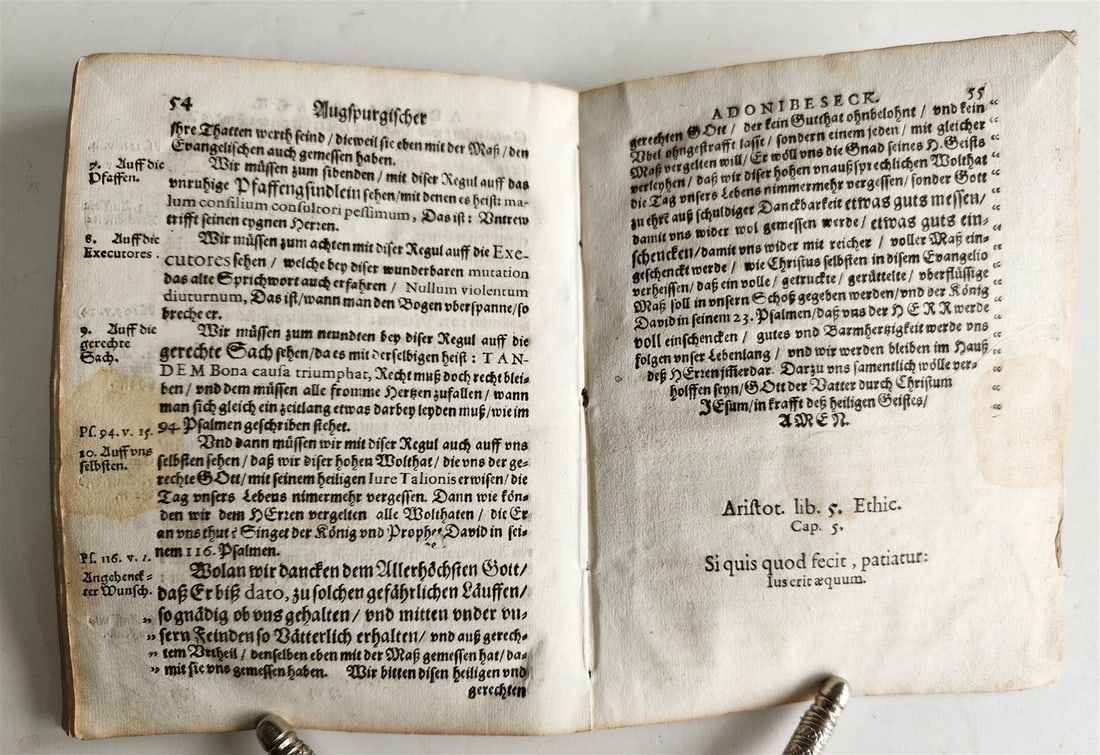 54 Augspurgischer
jhre Thatten werth seind / dieweil sie eben mit der Maß / den
Evangelischen auch gemessen haben.
7. Auff die
Pfaffen.
Wir müssen zum sibenden / mit diser Regul auff das
vnruhige Pfaffengsindlein sehen / mit denen es heist: ma-
lum consilium consultori pessimum, Das ist: Vntrew
trifft seinen eygnen Herren.
8. Auff die
Executores.
Wir müssen zum achten mit diser Regul auff die Exe-
cutores sehen / welche bey diser wunderbaren mutation
das alte Sprichwort auch erfahren / Nullum violentum
diuturnum, Das ist / wann man den Bogen vberspanne / so
breche er.
9. Auff die
gerechte
Sach.
Wir müssen zum neundten bey diser Regul auff die
gerechte Sach sehen / da es mit derselbigen heist: TAN-
DEM Bona causa triumphat, Recht muß doch recht blei-
ben / vnd dem müssen alle fromme Hertzen zufallen / wann
man sich gleich ein zeitlang etwas darbey leyden muß / wie im
94. Psalmen geschriben stehet.
Ps. 94. v. 15.
10. Auff vns
selbsten.
Vnd dann müssen wir mit diser Regul auch auff vns
selbsten sehen / daß wir diser hohen Wolthat / die vns der ge-
rechte GOtt / mit seinem heiligen Iure Talionis erwisen / die
Tag vnsers Lebens nimermehr vergessen. Dann wie kön-
den wir dem HErren vergelten alle Wolthaten / die Er
an vns thut? Singet der König vnd Prophet David in sei-
nem 116. Psalmen.
Ps. 116. v. 1.
Angehenck-
ter Wunsch.
Wolan wir dancken dem Allerhöchsten Gott /
daß Er biß dato, zu solchen gefährlichen Läuffen /
„ so gnädig ob vns gehalten / vnd mitten vnder vn-
„ sern Feinden so Vätterlich erhalten / vnd auß gerech-
„ tem Vrtheil / denselben eben mit der Maß gemessen hat / da-
„ mit sie vns gemessen haben. Wir bitten disen heiligen vnd
gerechten
ADONIBESECK. 55
gerechten GOtt / der kein Gutthat ohnbelohnt / vnd kein “
Vbel ohngestrafft lasst / sondern einem jeden / mit gleicher “
Maß vergelten will / Er wöll vns die Gnad seines H. Geists “
verleyhen / daß wir diser hohen vnaußsprechlichen Wolthat “
die Tag vnsers Lebens nimmermehr vergessen / sonder Gott “
zu ehrē auß schuldiger Danckbarkeit etwas guts messen / “
damit vns wider wol gemessen werde / etwas guts ein- “
schencken / damit vns wider mit reicher / voller Maß ein- “
geschenckt werde / wie Christus selbsten in disem Evangelio “
verheissen / daß ein volle / getruckte / gerüttelte / vberflüssige “
Maß soll in vnsern Schoß gegeben werden / vnd der König “
David in seinem 23. Psalmen / daß vns der HERR werde “
voll einschencken / gutes vnd Barmhertzigkeit werde vns “
folgen vnser Lebenlang / vnd wir werden bleiben im Hauß “
deß HErren jm̄erdar. Darzu vns samentlich wölle ver- “
holffen seyn / GOtt der Vatter durch Christum “
JEsum / in krafft deß heiligen Geistes / “
AMEN.
Aristot. lib. 5. Ethic.
Cap. 5.
Si quis quod fecit, patiatur:
Ius erit æquum.